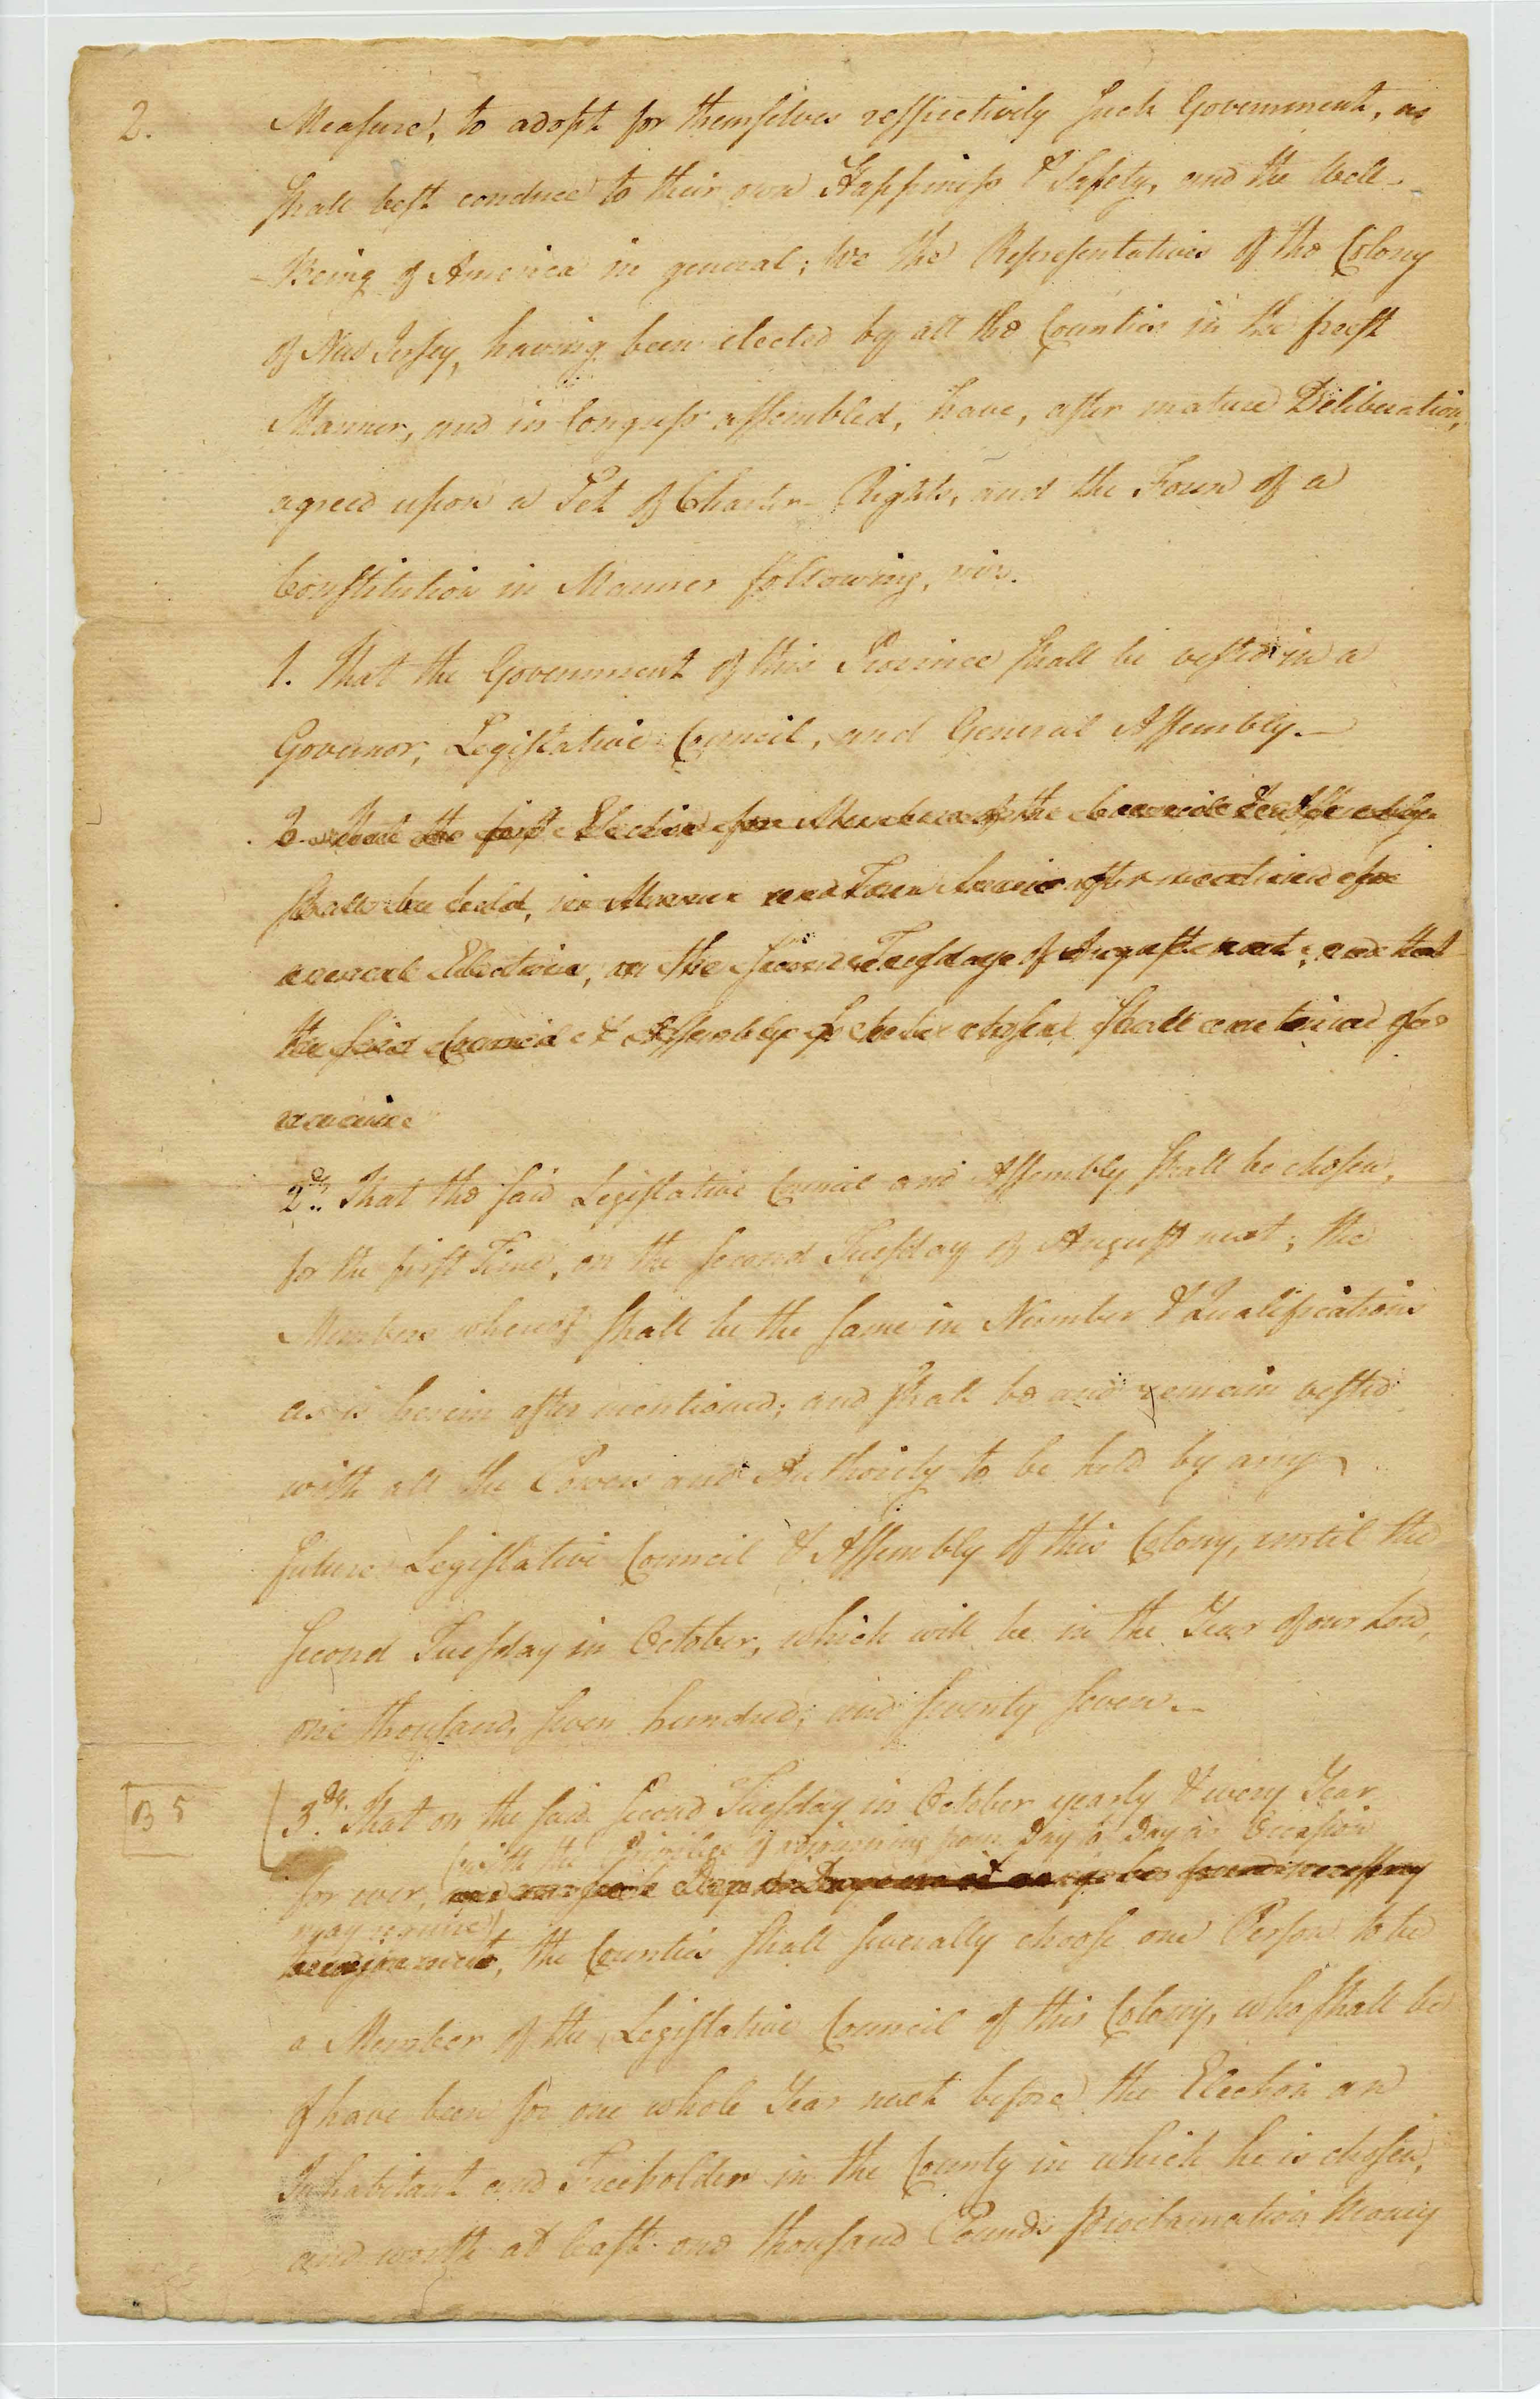 2.
Measure, to adopt for themselves respectively such Government, as
shall best conduce to their own Happiness & Safety, and the Well-
-Being of America in general; We the Representatives of the Colony
of New Jersey, having been elected by all the Counties in the freest
Manner, and in Congress assembled, have, after mature Deliberation,
agreed upon a Set of Charter-Rights, and the Form of a
Constitution in Manner following, viz.
1. That the Government of this Province shall be vested in a
Governor, Legislative Council, and General Assembly.—
2. That the first Election for Members of the Council & Assembly
shall be held, in Manner and Form herein after mentioned for
annual Elections, on the second Tuesday of August next; and that
the said Council & Assembly so to be chosen shall continue &
remain
2dly. That the said Legislative Council and Assembly shall be chosen,
for the first Time, on the second Tuesday of August next; the
Members whereof shall be the same in Number & Qualifications
as is herein after mentioned; and shall be and remain vested
with all the Powers and Authority to be held by any
future Legislative Council & Assembly of this Colony, until the
second Tuesday in October, which will be in the Year of our Lord,
one thousand, seven hundred, and seventy seven.—
B 5
3dly. That on the said second Tuesday in October yearly & every Year
(with the Privilege of adjourning from Day to Day as Occasion
for ever, and such Day to Day as it may be found necessary
may require)
to adjourn, the Counties shall severally choose one Person to be
a Member of the Legislative Council of this Colony, who shall be
& have been for one whole Year next before the Election an
Inhabitant and Freeholder in the County in which he is chosen,
and worth at least one thousand Pounds Proclamation Money